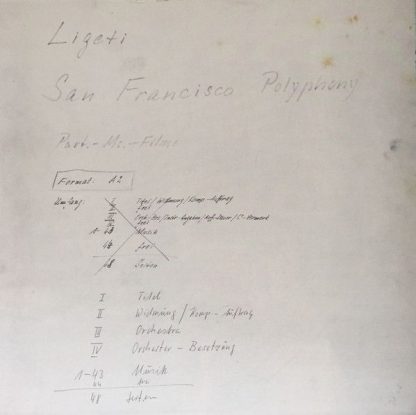 Ligeti
San Francisco Polyphony
Part.-Ms.-Filme
Format: A2
Umfang: I Titel / Widmung / Komp.-Auftrag
frei
1-43 Musik
44 frei
48 Seiten
I Titel
II Widmung / Komp.-Auftrag
III Orchestra
IV Orchester-Besetzung
1-43 Musik
44
48 Seiten